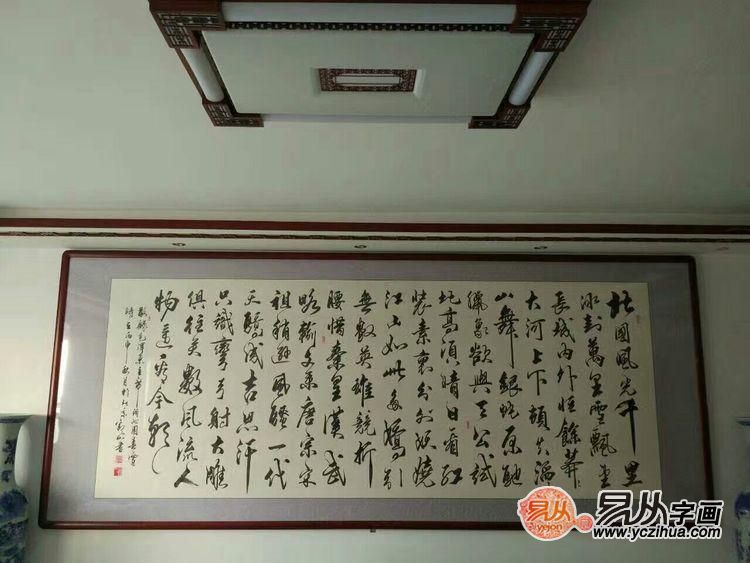 北國風光千里
冰封萬里雪飄望
長城內外惟餘莽
大河上下頓失滔
山舞銀蛇原馳
蠟象欲與天公試
比高須晴日看紅
裝素裹分外妖嬈
江山如此多嬌引
無數英雄競折
腰惜秦皇漢武
略輸文采唐宗宋
祖稍遜風騷一代
天驕成吉思汗
只識彎弓射大雕
俱往矣數風流人
物還看今朝
敬錄毛澤東主席詞沁園春雪
時在丙申秋月於北京
易从
yejon
易从字画
www.yczihua.com